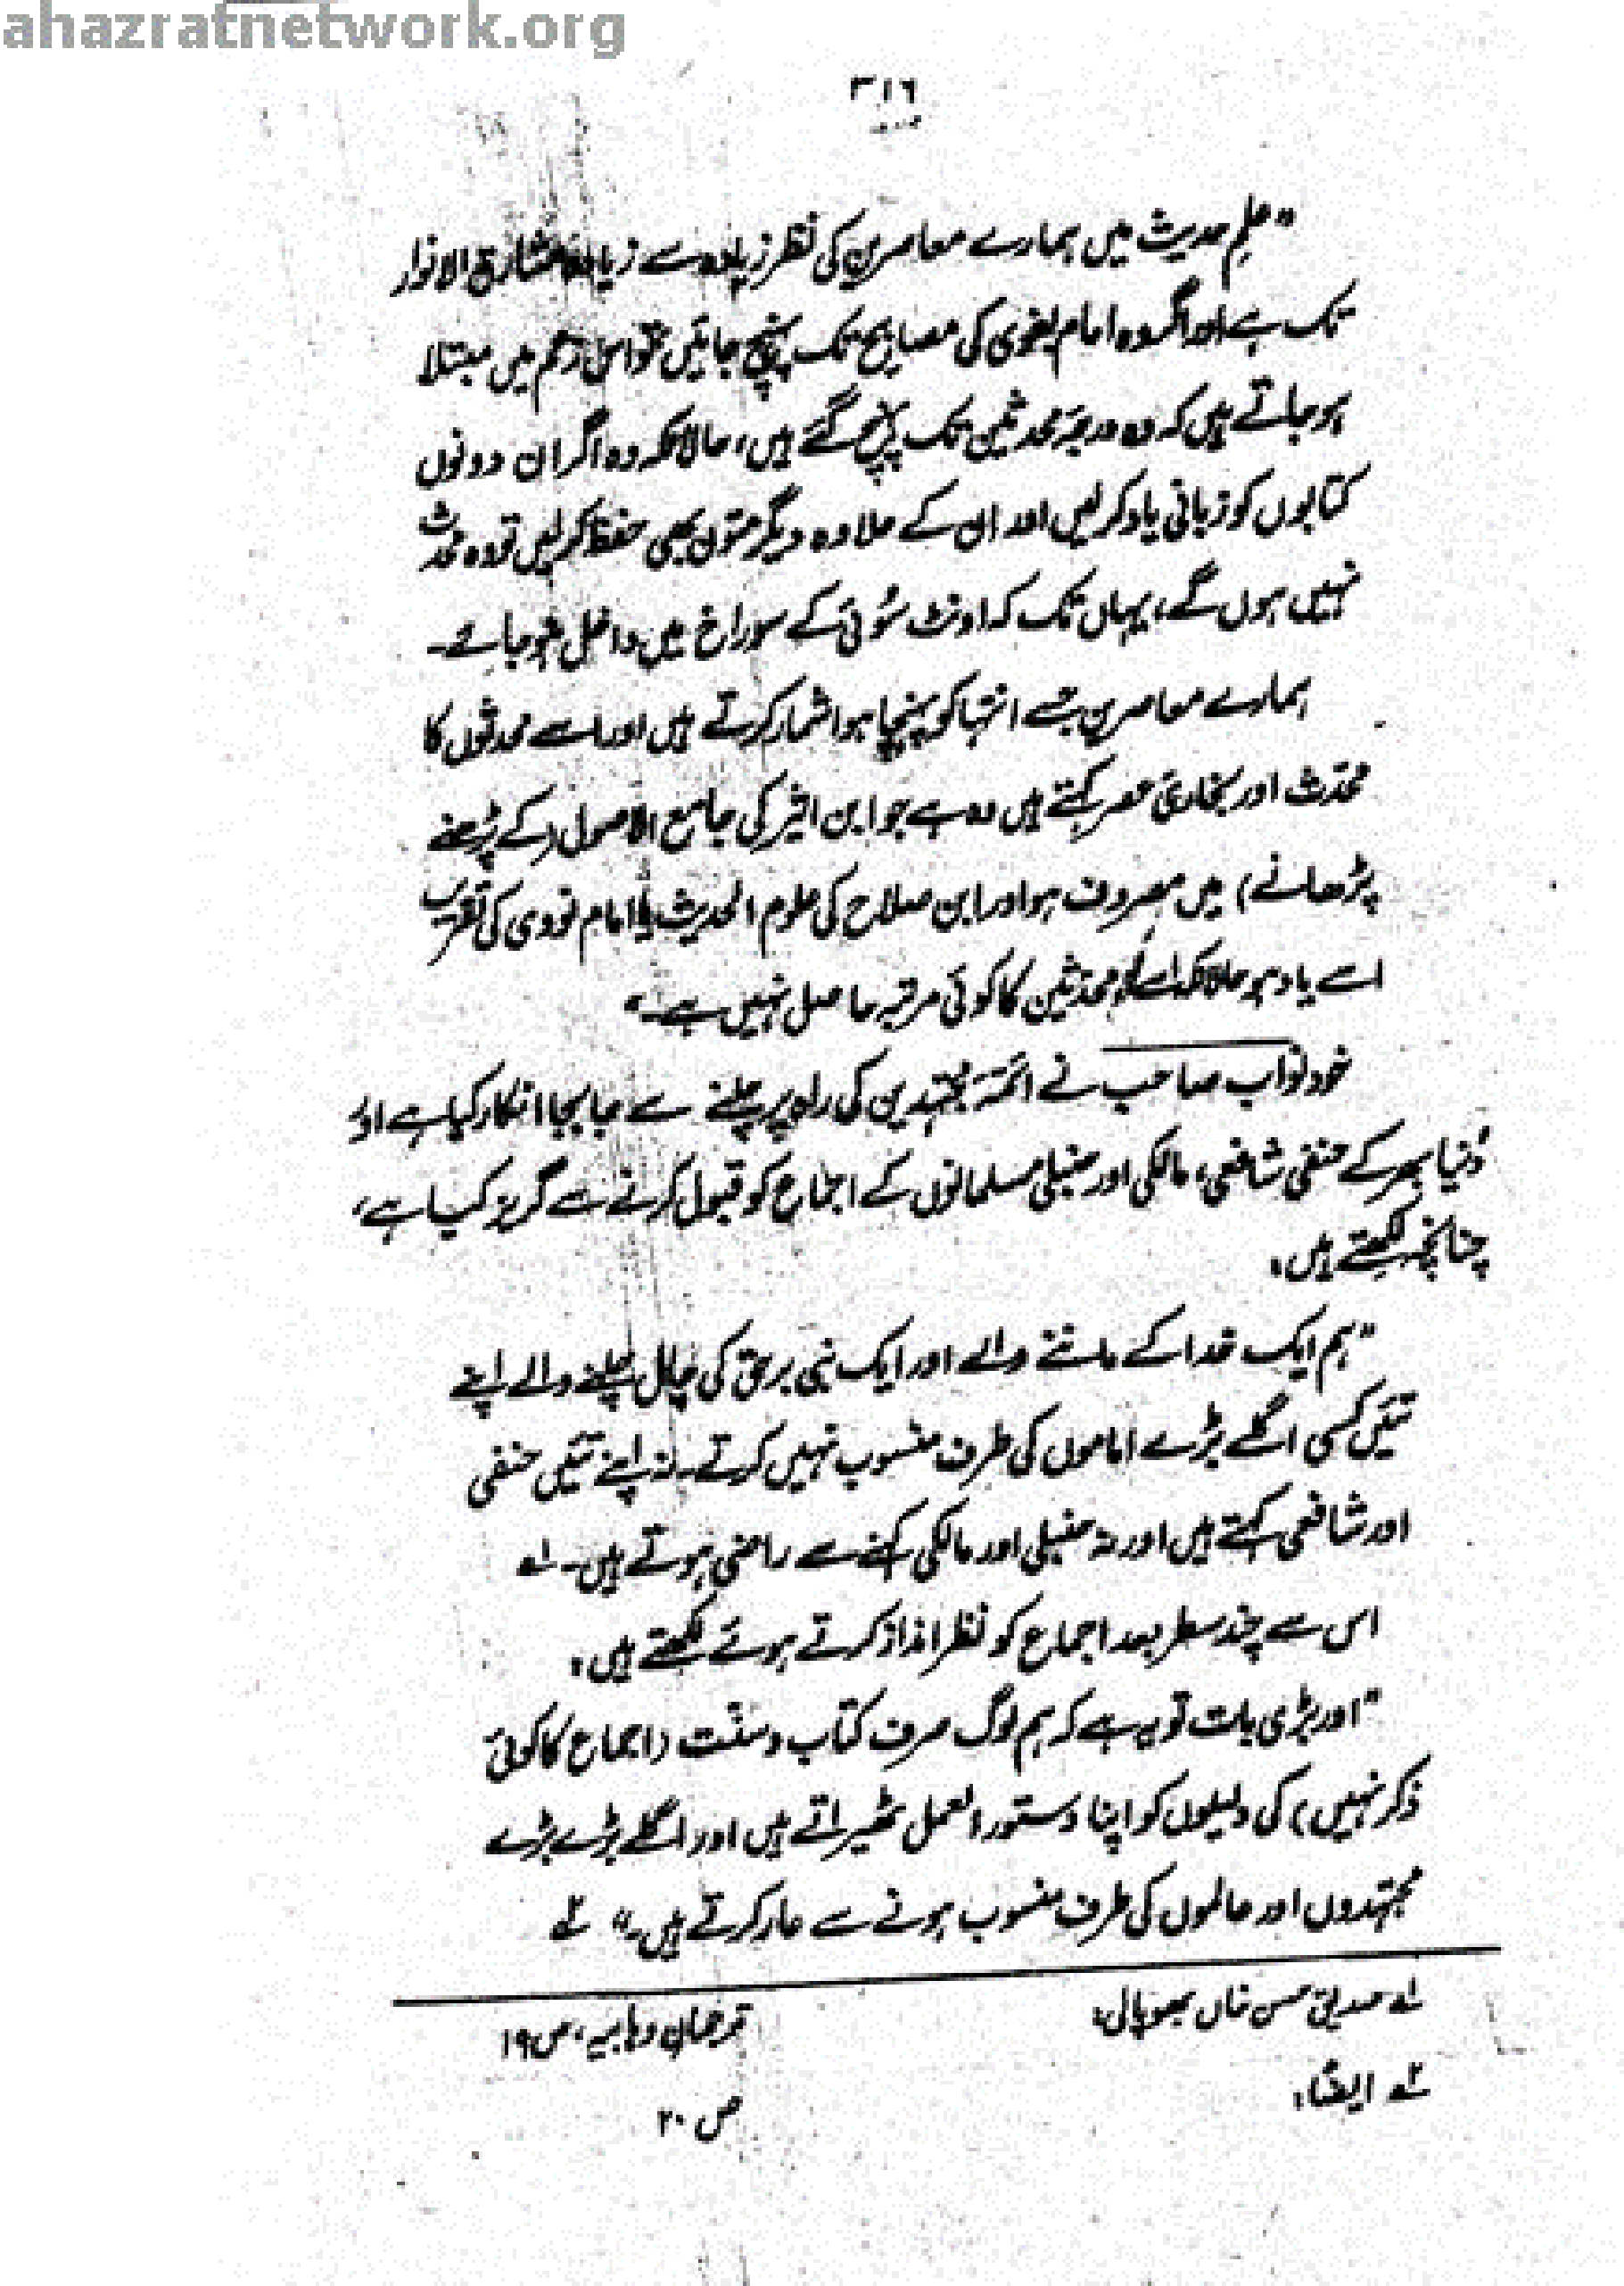 ahazratnetwork.org
۳۱۶
"علمِ حدیث میں ہمارے معاصرین کی نظر زیادہ سے زیادہ مشارق الانوار
تک ہے اور اگر وہ امام بغوی کی مصابیح تک پہنچ جائیں تو اس زعم میں مبتلا
ہو جاتے ہیں کہ وہ درجۂ محدثین تک پہنچ گئے ہیں، حالانکہ وہ اگر ان دونوں
کتابوں کو زبانی یاد کر لیں اور ان کے علاوہ دیگر متون بھی حفظ کر لیں تو وہ محدث
نہیں ہوں گے، یہاں تک کہ اونٹ سُوئی کے سوراخ میں داخل ہو جائے۔
ہمارے معاصرین جسے انتہا کو پہنچا ہوا شمار کرتے ہیں اور اسے محدثوں کا
محدّث اور بخاریٔ عصر کہتے ہیں وہ ہے جو ابن اثیر کی جامع الاصول (کے پڑھنے
پڑھانے) میں مصروف ہو اور ابن صلاح کی علوم الحدیث یا امام نووی کی تقریب
اسے یاد ہو حالانکہ اسے محدثین کا کوئی مرتبہ حاصل نہیں ہے۔"
خود نواب صاحب نے ائمۂ مجتہدین کی راہ پر چلنے سے جابجا انکار کیا ہے اور
دُنیا بھر کے حنفی شافعی، مالکی اور حنبلی مسلمانوں کے اجماع کو قبول کرنے سے گریز کیا ہے،
چنانچہ لکھتے ہیں:
"ہم ایک خدا کے ماننے والے اور ایک نبی برحق کی چال چلنے والے اپنے
تئیں کسی اگلے بڑے اماموں کی طرف منسوب نہیں کرتے۔ نہ اپنے تئیں حنفی
اور شافعی کہتے ہیں اور نہ حنبلی اور مالکی کہنے سے راضی ہوتے ہیں۔ ۱ے
اس سے چند سطر بعد اجماع کو نظر انداز کرتے ہوئے لکھتے ہیں:
"اور بڑی بات تو یہ ہے کہ ہم لوگ صرف کتاب و سنّت (اجماع کا کوئی
ذکر نہیں) کی دلیلوں کو اپنا دستور العمل ٹھیراتے ہیں اور اگلے بڑے بڑے
مجتہدوں اور عالموں کی طرف منسوب ہونے سے عار کرتے ہیں۔" ۲ے
۱ے صدیق حسن خاں بھوپالی: ترجمان وہابیہ، ص ۱۹
۲ے ایضاً: ص ۲۰